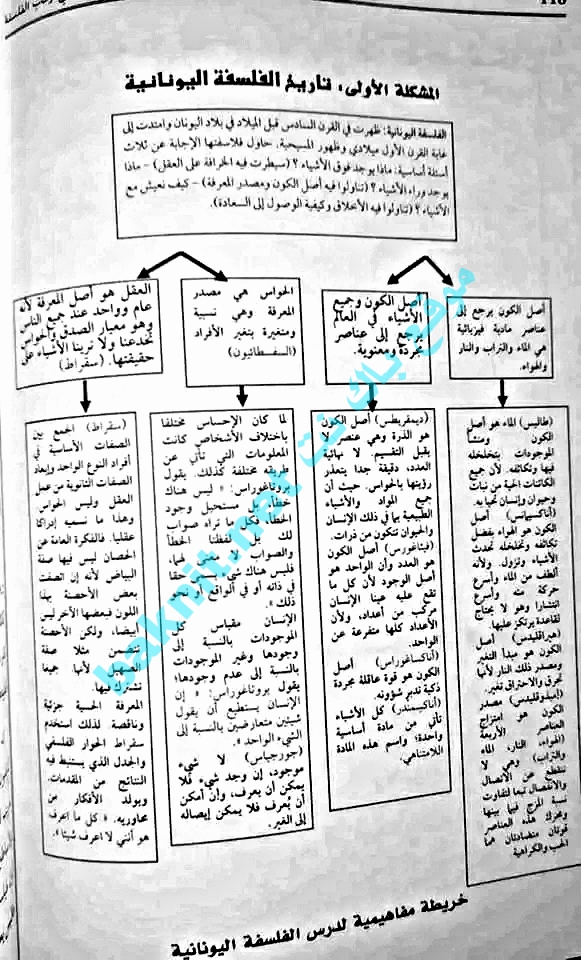 110
المشكلة الأولى: تاريخ الفلسفة اليونانية
الفلسفة اليونانية: ظهرت في القرن السادس قبل الميلاد في بلاد اليونان وامتدت إلى
غاية القرن الأول ميلادي وظهور المسيحية. حاول فلاسفتها الإجابة عن ثلاث
أسئلة أساسية: ماذا يوجد فوق الأشياء؟ (سيطرت فيه الخرافة على العقل) – ماذا
يوجد وراء الأشياء؟ (تناولوا فيه أصل الكون ومصدر المعرفة) – كيف نعيش مع
الأشياء؟ (تناولوا فيه الأخلاق وكيفية الوصول إلى السعادة).
أصل الكون يرجع إلى
عناصر مادية فيزيائية
هي الماء والتراب والنار
والهواء.
أصل الكون وجميع
الأشياء في العالم
يرجع إلى عناصر
مجردة ومعنوية.
الحواس هي مصدر
المعرفة وهي نسبية
ومتغيرة بتغير الأفراد
(السفسطائيون)
العقل هو أصل المعرفة لأنه
عام وواحد عند جميع الناس
وهو معيار الصدق والحواس
تخدعنا ولا ترينا الأشياء على
حقيقتها. (سقراط)
(طاليس) الماء هو أصل
الكون ومنشأ
الموجودات بتخلخله
فيها وتكاثفه. لأن جميع
الكائنات الحية من نبات
وحيوان وإنسان تحيا به.
(أناكسيمانس) أصل
الكون هو الهواء بفضل
تكاثفه وتخلخله تحدث
الأشياء وتزول. ولأنه
ألطف من الماء وأسرع
حركة منه وأسرع
انتشارا وهو لا يحتاج
لقاعدة يرتكز عليها.
(هيراقليدس) أصل
الكون هو مبدأ التغير
ومصدر ذلك النار لأنها
تحرق والاحتراق تغير.
(أمبيدوقليدس) مصدر
الكون هو امتزاج
العناصر الأربعة
(الهواء، النار، الماء
والتراب) وهي لا
تنقطع عن الاتصال
والانفصال تبعا لتفاوت
نسبة المزج فيما بينها
وتحرك هذه العناصر
قوتان متضادتان هما
الحب والكراهية
(ديمقريطس) أصل الكون
هو الذرة وهي عنصر لا
يقبل التقسيم. لا نهائية
العدد، دقيقة جدا يتعذر
رؤيتها بالحواس. حيث أن
جميع المواد والأشياء
الطبيعية بما في ذلك الإنسان
والحيوان تتكون من ذرات.
(فيثاغورس) أصل الكون
هو العدد وأن الواحد هو
أصل الوجود لأن كل ما
تقع عليه عينا الإنسان
مركب من أعداد، ولأن
الأعداد كلها متفرعة عن
الواحد.
(أناكساغوراس) أصل
الكون هو قوة عاقلة مجردة
ذكية تدبر شؤونه.
(أناكسيمندر) كل الأشياء
تأتي من مادة أساسية
واحدة؛ واسم هذه المادة
اللامتناهي.
لما كان الإحساس مختلفا
باختلاف الأشخاص كانت
المعلومات التي تأتي عن
طريقه مختلفة كذلك. يقول
بروتاغوراس: « ليس هناك
خطأ، بل مستحيل وجود
الخطأ، فكل ما تراه صواب
لك بل لفظتا الخطأ
والصواب لا معنى لهما،
فليس هناك شيء يسمى حقا
في ذاته أو في الواقع أو نحو
ذلك »
الإنسان مقياس كل
الموجودات بالنسبة إلى
وجودها وغير الموجودات
بالنسبة إلى عدم وجودها؛
يقول بروتاغوراس: « إن
الإنسان يستطيع أن يقول
شيئين متعارضين بالنسبة إلى
الشيء الواحد ».
(جورجياس) لا شيء
موجود، إن وجد شيء فلا
يمكن أن يعرف، وإن أمكن
أن يُعرف فلا يمكن إيصاله
إلى الغير.
(سقراط) الجمع بين
الصفات الأساسية في
أفراد النوع الواحد وإبعاد
الصفات الثانوية من عمل
العقل وليس الحواس.
وهذا ما نسميه إدراكا
عقليا. فالفكرة العامة عن
الحصان ليس فيها صفة
البياض لأنه إن اتصفت
بعض الأحصنة بهذا
اللون فبعضها الآخر ليس
أبيضا. ولكن الأحصنة
تتضمن مثلا صفة
الصهيل لأنها جميعا
تشترك فيها.
المعرفة الحسية جزئية
وناقصة. لذلك استخدم
سقراط الحوار الفلسفي
والجدل الذي يستنبط فيه
النتائج من المقدمات.
ويولد الأفكار من
محاوريه. « كل ما أعرف
هو أنني لا أعرف شيئا ».
موقع باك نت baknit.net
خريطة مفاهيمية لدرس الفلسفة اليونانية